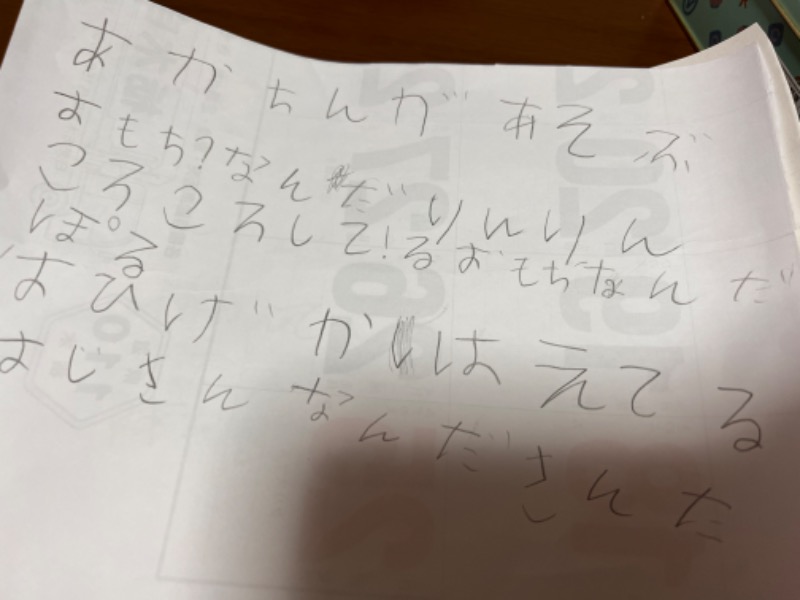 あかちんがあそぶ
おもち?なんだりんりん
ころころして!るおもちなんだ
ぽ。る
おひげがはえてる
おじさんなんださんた